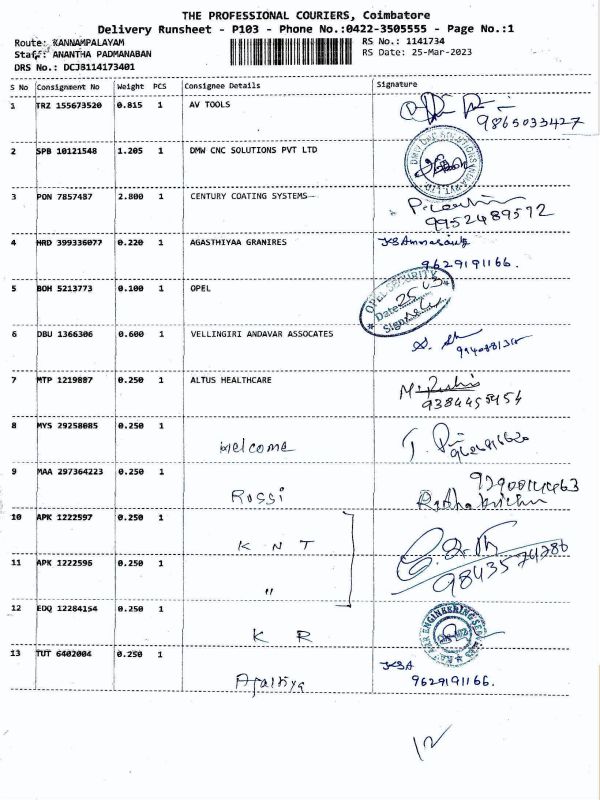 THE PROFESSIONAL COURIERS, Coimbatore
Delivery Runsheet - P103 - Phone No.:0422-3505555 - Page No.:1
Route: KANNAMPALAYAM RS No.: 1141734
Staff: ANANTHA PADMANABAN RS Date: 25-Mar-2023
DRS No.: DCJ8114173401
S No Consignment No Weight PCS Consignee Details Signature
1 TRZ 155673520 0.815 1 AV TOOLS
9865033427
2 SPB 10121548 1.205 1 DMW CNC SOLUTIONS PVT LTD
3 PON 7857487 2.800 1 CENTURY COATING SYSTEMS
9952489572
4 HRD 399336077 0.220 1 AGASTHIYAA GRANIRES
9629191166.
5 BOH 5213773 0.100 1 OPEL
OPEL-SECURITY
Date
Sign
6 DBU 1366306 0.600 1 VELLINGIRI ANDAVAR ASSOCATES
7 MTP 1219887 0.250 1 ALTUS HEALTHCARE
8 MYS 29258085 0.250 1
Welcome
9 MAA 297364223 0.250 1
Rossi
10 APK 1222597 0.250 1
K N T
11 APK 1222596 0.250 1
"
12 EDQ 12284154 0.250 1
K R
13 TUT 6402004 0.250 1
JKSA
9629191166.
12